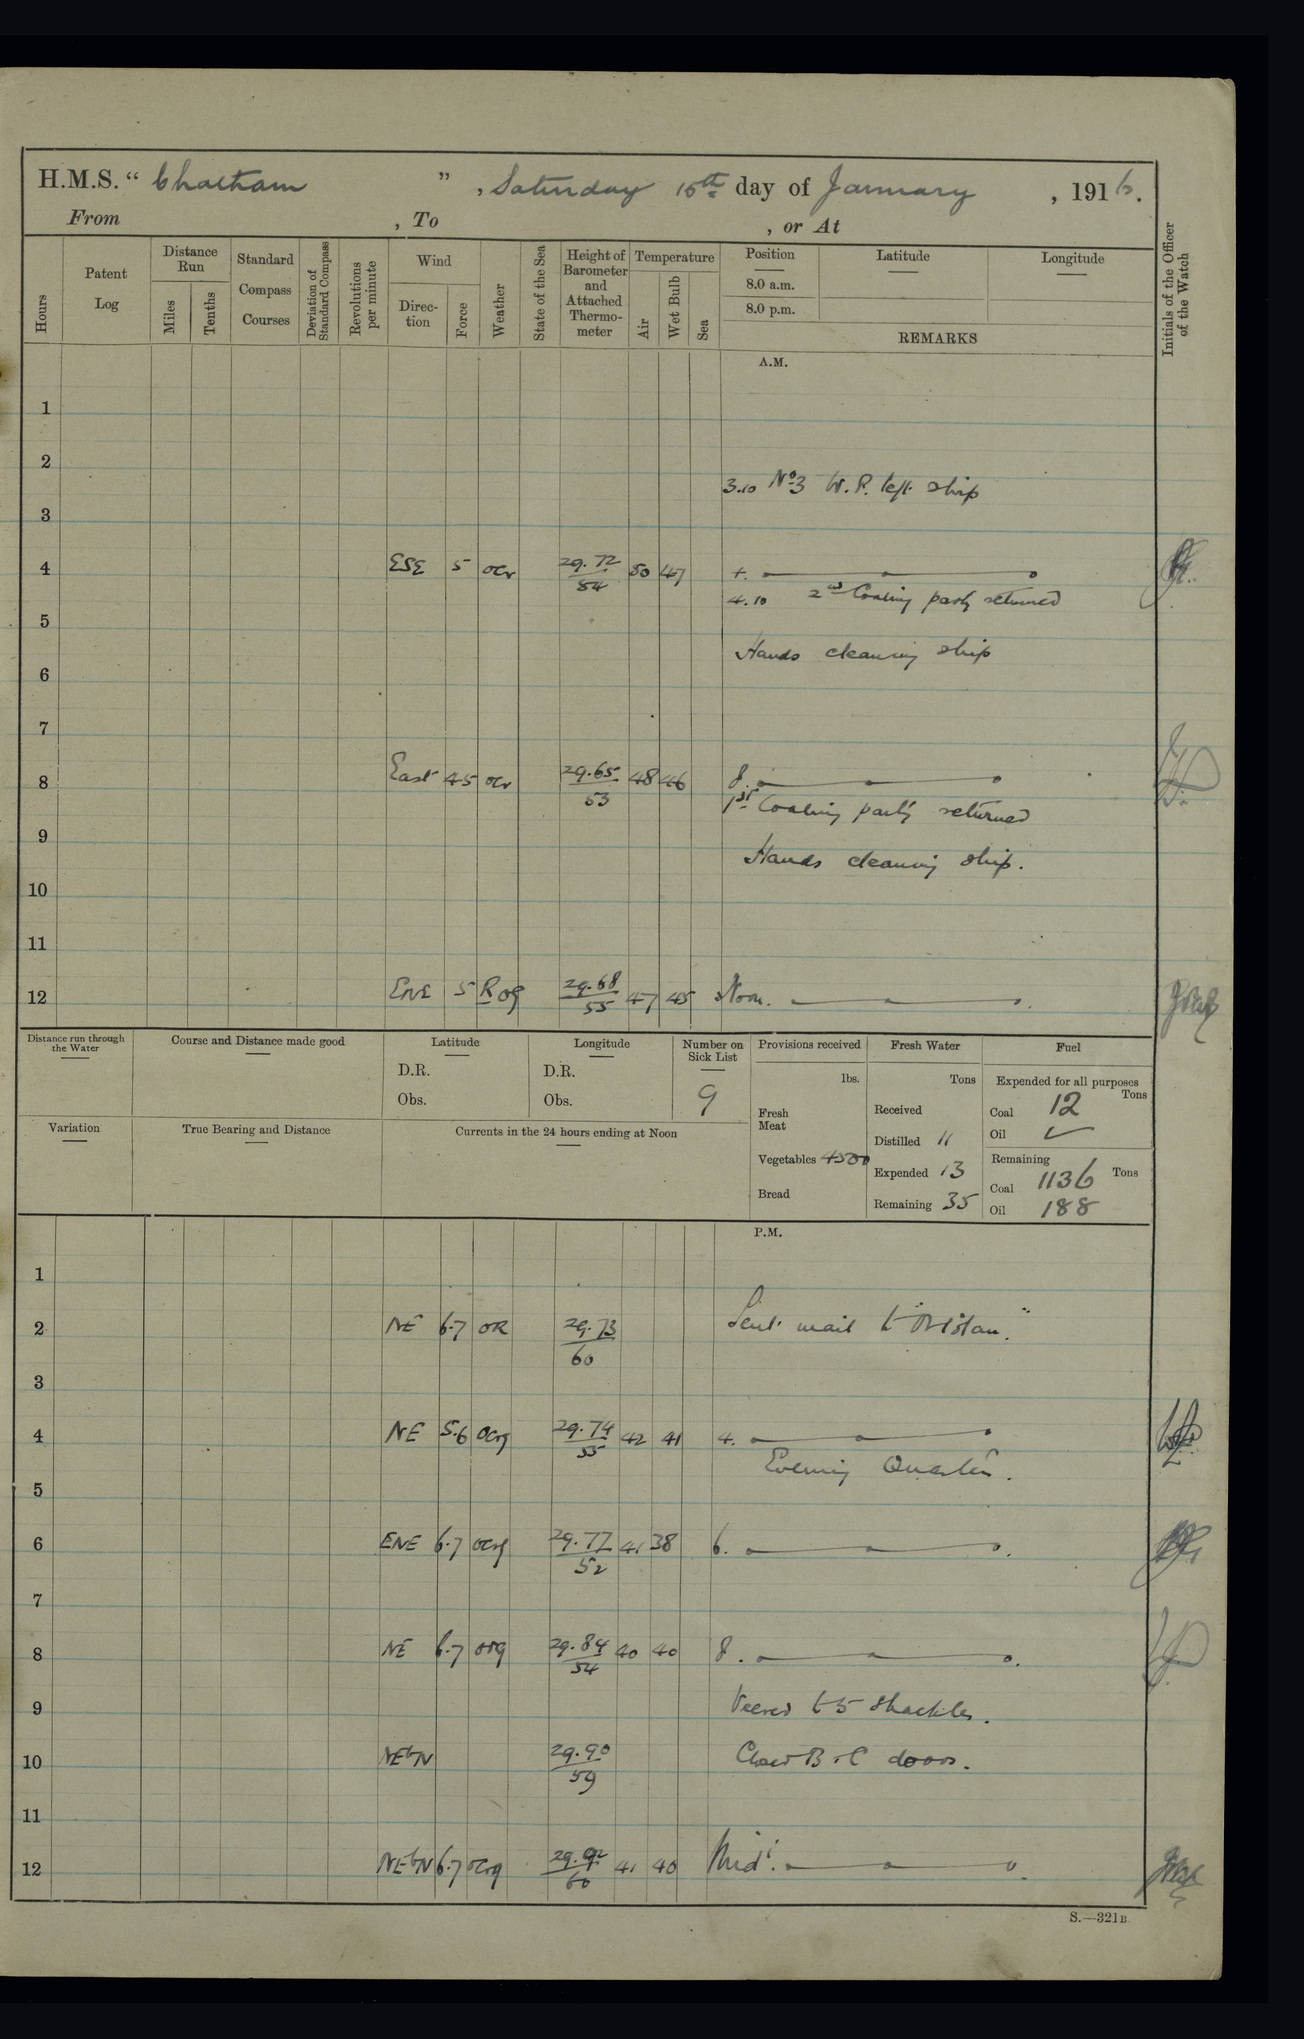 H.M.S. “ Chatham ” , Saturday 15th day of January , 1916.
From , To , or At
Hours
Patent Log
Distance Run
Miles
Tenths
Standard Compass Courses
Deviation of Standard Compass
Revolutions per minute
Wind
Direc-tion
Force
Weather
State of the Sea
Height of Barometer and Attached Thermo-meter
Temperature
Air
Wet Bulb
Sea
Position
8.0 a.m.
8.0 p.m.
Latitude
Longitude
REMARKS
Initials of the Officer of the Watch
A.M.
1
2
3.10 No 3 W.P. left ship
3
4 ESE 5 ocr 29.72 50 47 4.
54
4.10 2nd Coaling party returned
5
Hands cleaning ship
6
7
8 East 4.5 ocr 29.65 48 46 8.
53
1st Coaling party returned
9
Hands cleaning ship.
10
11
12 ENE 5 R og 29.68 47 45 Noon.
55
Distance run through the Water
Course and Distance made good
Latitude
D.R.
Obs.
Longitude
D.R.
Obs.
Number on Sick List
9
Provisions received
lbs.
Fresh Meat
Vegetables 4500
Bread
Fresh Water
Tons
Received
Distilled 11
Expended 13
Remaining 35
Fuel
Expended for all purposes
Tons
Coal 12
Oil ✓
Remaining
Tons
Coal 1136
Oil 188
Variation
True Bearing and Distance
Currents in the 24 hours ending at Noon
P.M.
1
2 NE 6.7 OR 29.73 Sent mail to
60
3
4 NE 5.6 ocrg 29.74 42 41 4.
55
Evening Quarters.
5
6 ENE 6.7 ocrg 29.77 41 38 6.
52
7
8 NE 6.7 org 29.84 40 40 8.
54
9 Veered to 5 shackles.
10 NEbN 29.90 Closed B & C doors.
59
11
12 NEbN 6.7 ocrg 29.92 41 40 Midt.
60
S.—321B